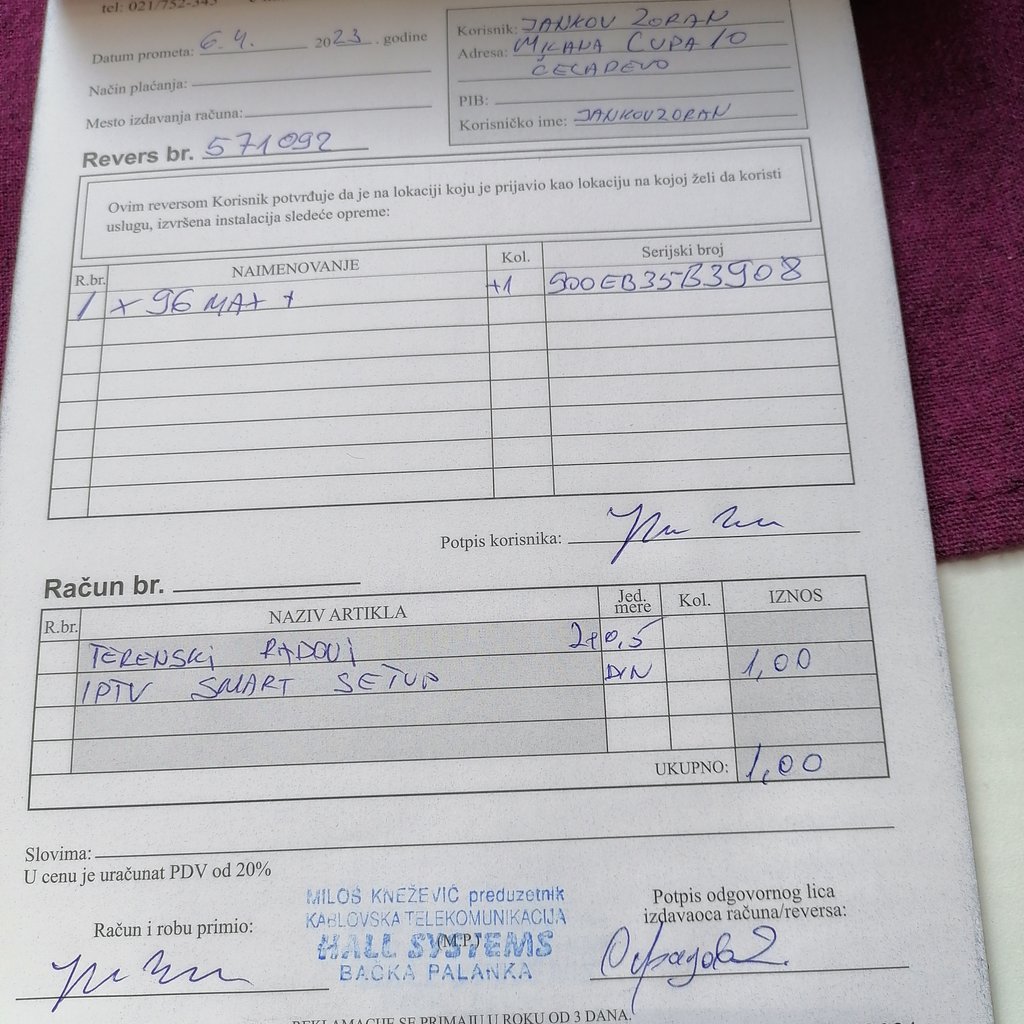 tel: 021/752-343
Datum prometa: 6.4. 2023. godine
Način plaćanja:
Mesto izdavanja računa:
Korisnik: JANKOV ZORAN
Adresa: MILANA ČUPA 10
ČELAREVO
PIB:
Korisničko ime: JANKOVZORAN
Revers br. 571092
Ovim reversom Korisnik potvrđuje da je na lokaciji koju je prijavio kao lokaciju na kojoj želi da koristi
uslugu, izvršena instalacija sledeće opreme:
R.br. NAIMENOVANJE Kol. Serijski broj
1 X 96 MAX + +1 900EB35B3908
Potpis korisnika:
Račun br.
R.br. NAZIV ARTIKLA Jed. mere Kol. IZNOS
TERENSKI RADOVI
IPTV SMART SETUP DIN 1,00
UKUPNO: 1,00
Slovima:
U cenu je uračunat PDV od 20%
Račun i robu primio:
MILOŠ KNEŽEVIĆ preduzetnik
KABLOVSKA TELEKOMUNIKACIJA
HALL SYSTEMS
(M.P.)
BAČKA PALANKA
Potpis odgovornog lica
izdavaoca računa/reversa:
REKLAMACIJE SE PRIMAJU U ROKU OD 3 DANA.